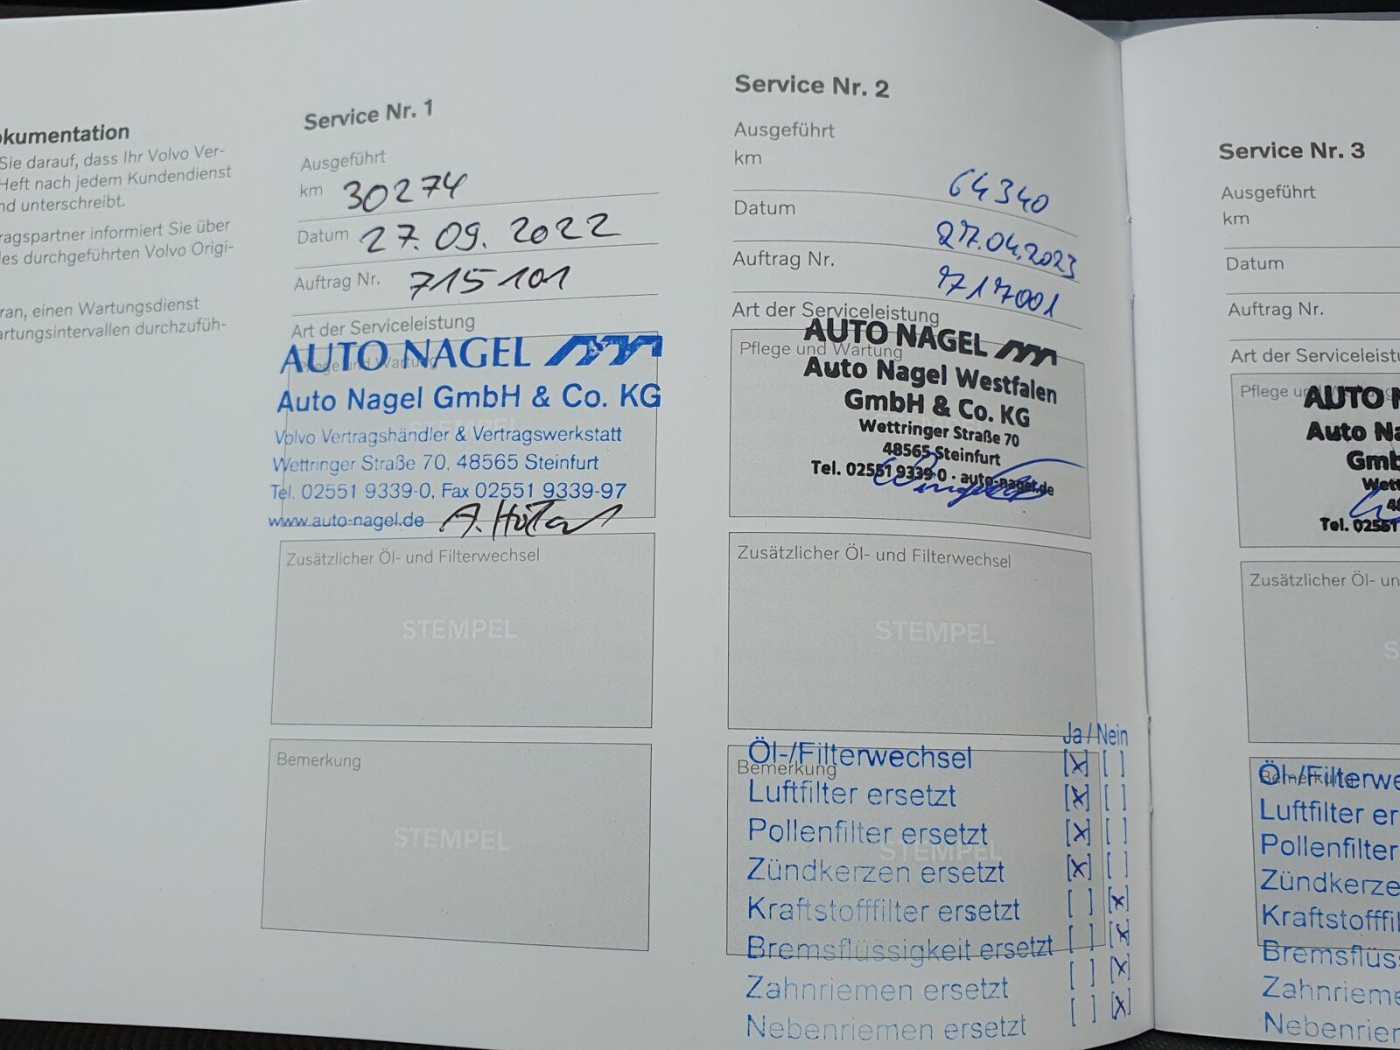 okumentation
Sie darauf, dass Ihr Volvo Ver-
Heft nach jedem Kundendienst
nd unterschreibt.
ragspartner informiert Sie über
les durchgeführten Volvo Origi-
ran, einen Wartungsdienst
artungsintervallen durchzufüh-
Service Nr. 1
Ausgeführt
km 30274
Datum 27.09.2022
Auftrag Nr. 715101
Art der Serviceleistung
AUTO NAGEL
Auto Nagel GmbH & Co. KG
Volvo Vertragshändler & Vertragswerkstatt
Wettringer Straße 70, 48565 Steinfurt
Tel. 02551 9339-0, Fax 02551 9339-97
www.auto-nagel.de
Zusätzlicher Öl- und Filterwechsel
STEMPEL
Bemerkung
STEMPEL
Service Nr. 2
Ausgeführt
km 64340
Datum 27.04.2023
Auftrag Nr. 717001
Art der Serviceleistung
Pflege und Wartung
AUTO NAGEL
Auto Nagel Westfalen
GmbH & Co. KG
Wettringer Straße 70
48565 Steinfurt
Tel. 02551 9339-0 · auto-nagel.de
Zusätzlicher Öl- und Filterwechsel
STEMPEL
Bemerkung
STEMPEL
Ja / Nein
Öl-/Filterwechsel [x] [ ]
Luftfilter ersetzt [x] [ ]
Pollenfilter ersetzt [x] [ ]
Zündkerzen ersetzt [x] [ ]
Kraftstofffilter ersetzt [ ] [x]
Bremsflüssigkeit ersetzt [ ] [x]
Zahnriemen ersetzt [ ] [x]
Nebenriemen ersetzt [ ] [x]
Service Nr. 3
Ausgeführt
km
Datum
Auftrag Nr.
Art der Serviceleistu
Pflege u
AUTO N
Auto Na
Gmb
Wett
48
Tel. 02551
Zusätzlicher Öl- un
S
Öl-/Filterwe
Luftfilter er
Pollenfilter
Zündkerze
Kraftstofffil
Bremsflüss
Zahnrieme
Nebenrier